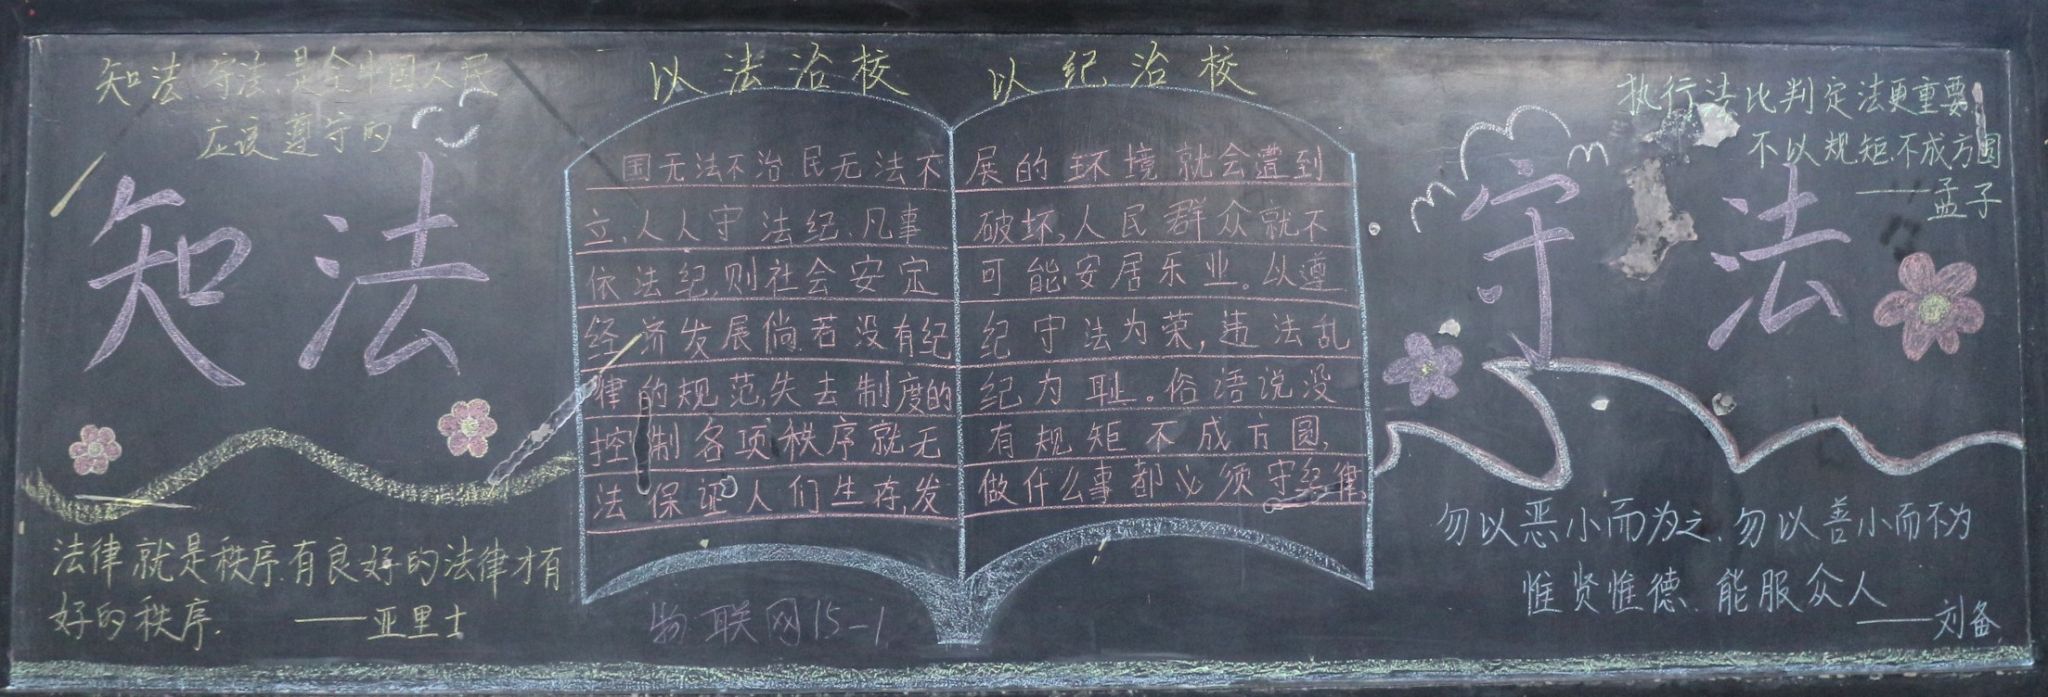 知法、守法、是全中国人民
应该遵守的
知法
法律就是秩序、有良好的法律才有
好的秩序.
——亚里士
以法治校 以纪治校
国无法不治民无法不
立、人人守法纪、凡事
依法纪、则社会安定
经济发展倘若没有纪
律的规范,失去制度的
控制各项秩序就无
法保证人们生存,发
展的环境就会遭到
破坏,人民群众就不
可能安居乐业。以遵
纪守法为荣,违法乱
纪为耻。俗语说没
有规矩不成方圆,
做什么事都必须守纪律
物联网15-1
执行法比判定法更重要
不以规矩、不成方圆
——孟子
守法
勿以恶小而为之、勿以善小而不为
惟贤惟德、能服众人
——刘备